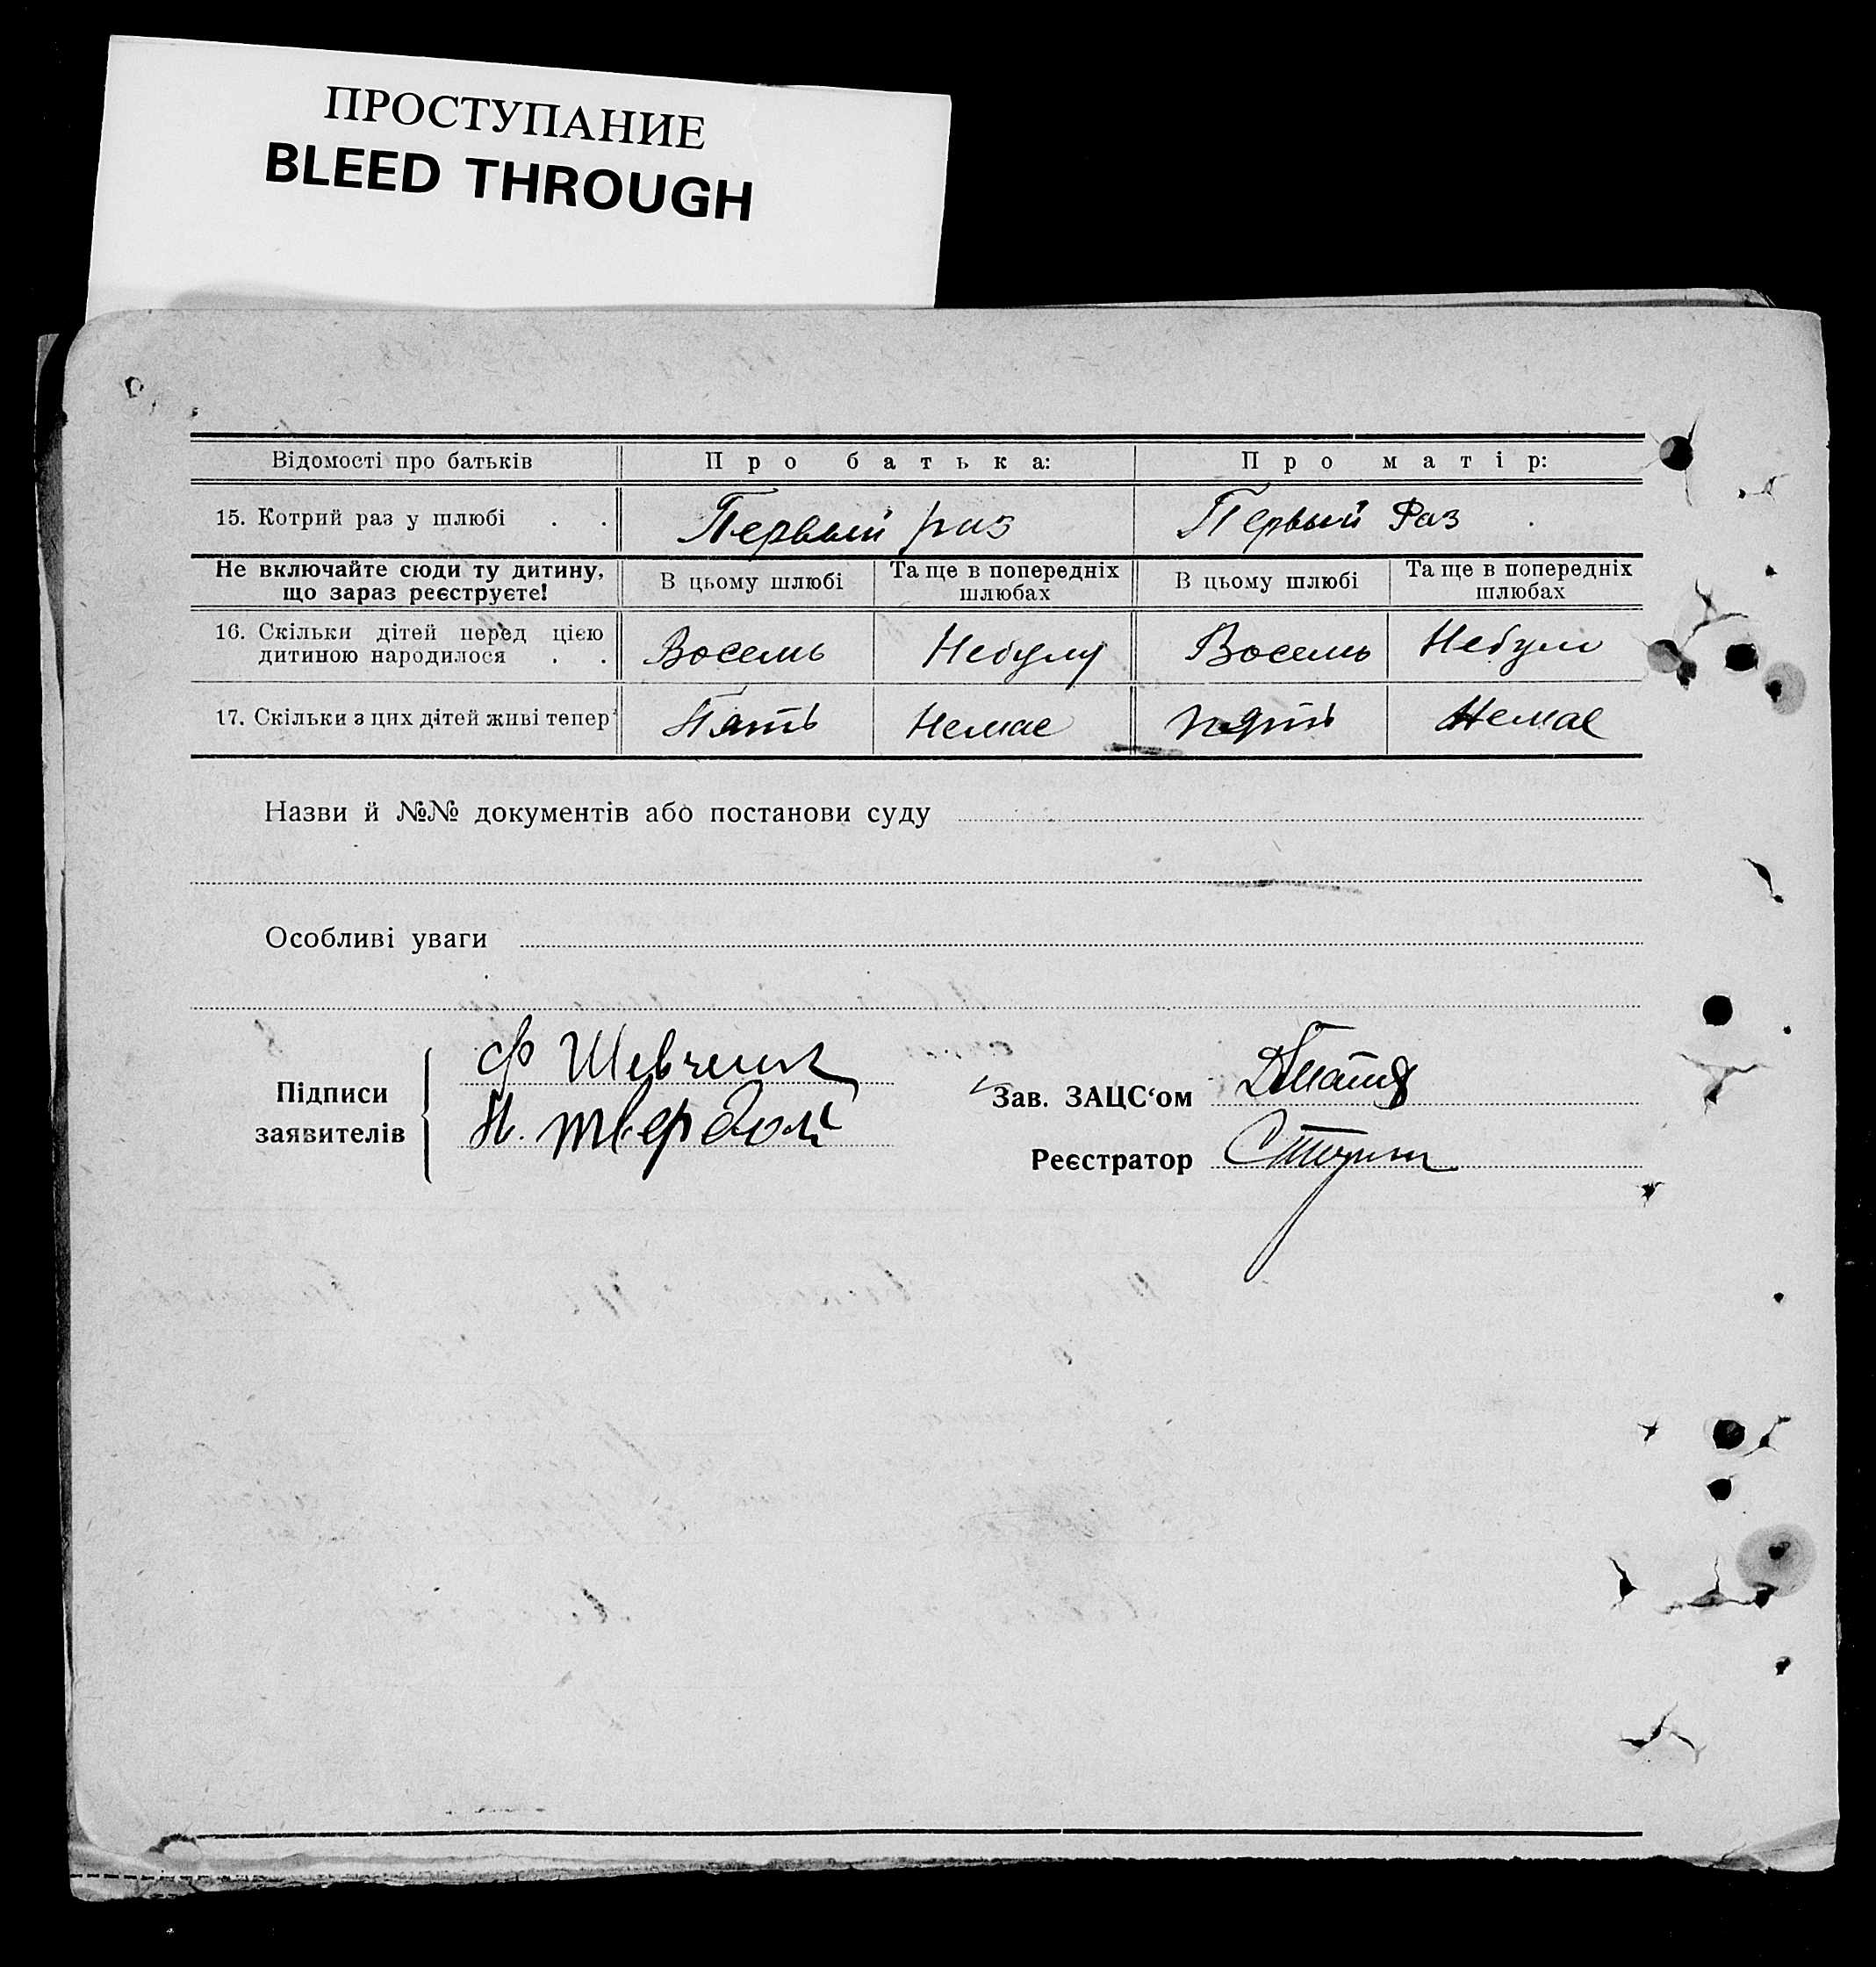 ПРОСТУПАНИЕ
BLEED THROUGH
Відомості про батьків Про батька: Про матір:
15. Котрий раз у шлюбі . . Первый раз Первый Раз
Не включайте сюди ту дитину, що зараз реєструєте! В цьому шлюбі Та ще в попередніх шлюбах В цьому шлюбі Та ще в попередніх шлюбах
16. Скільки дітей перед цією дитиною народилося . . Восемь Небуло Восемь Небуло
17. Скільки з цих дітей живі тепер Пять Немае пять Немае
Назви й №№ документів або постанови суду
Особливі уваги
Підписи заявителів
Ф Шевченк
Н. Твердой
Зав. ЗАЦС‘ом
Реєстратор